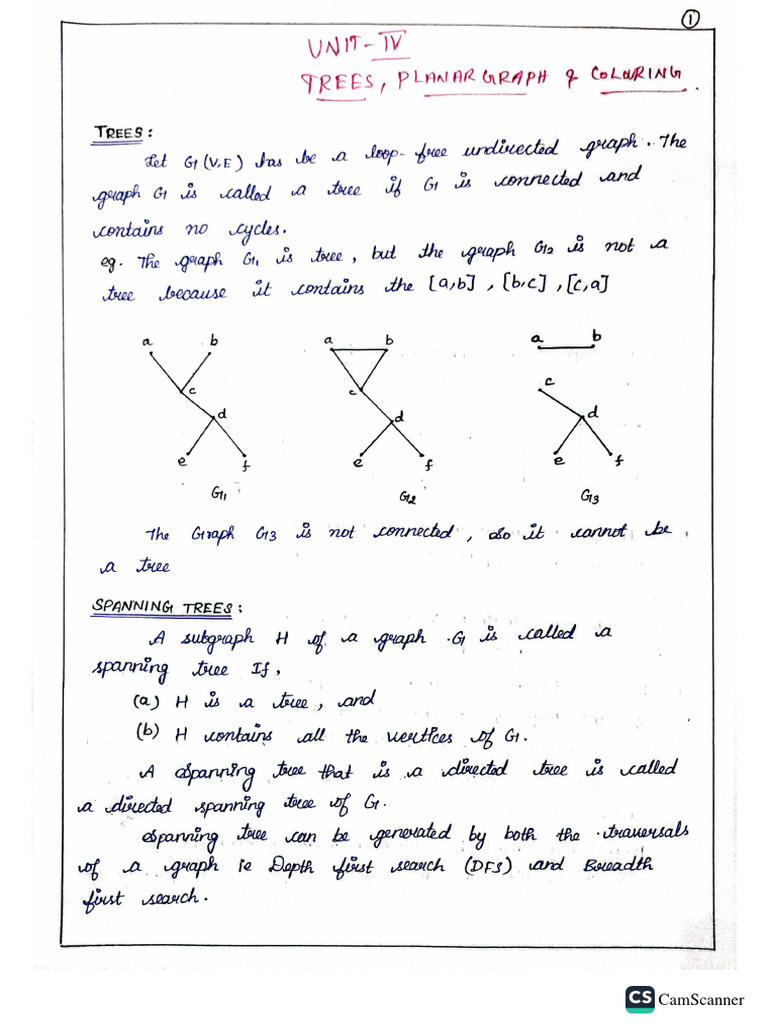 1
UNIT-IV
TREES, PLANAR GRAPH & COLOURING
TREES:
Let G(V,E) has be a loop-free undirected graph. The
graph G is called a tree if G is connected and
contains no cycles.
eg. The graph G1 is tree, but the graph G2 is not a
tree because it contains the [a,b], [b,c], [c,a]
a b a b a b
c c c
d d d
e f e f e f
G1 G2 G3
The Graph G3 is not connected, so it cannot be
a tree
SPANNING TREES:
A subgraph H of a graph G is called a
spanning tree If,
(a) H is a tree, and
(b) H contains all the vertices of G.
A spanning tree that is a directed tree is called
a directed spanning tree of G.
Spanning tree can be generated by both the traversals
of a graph ie Depth first search (DFS) and Breadth
first search.
CS CamScanner